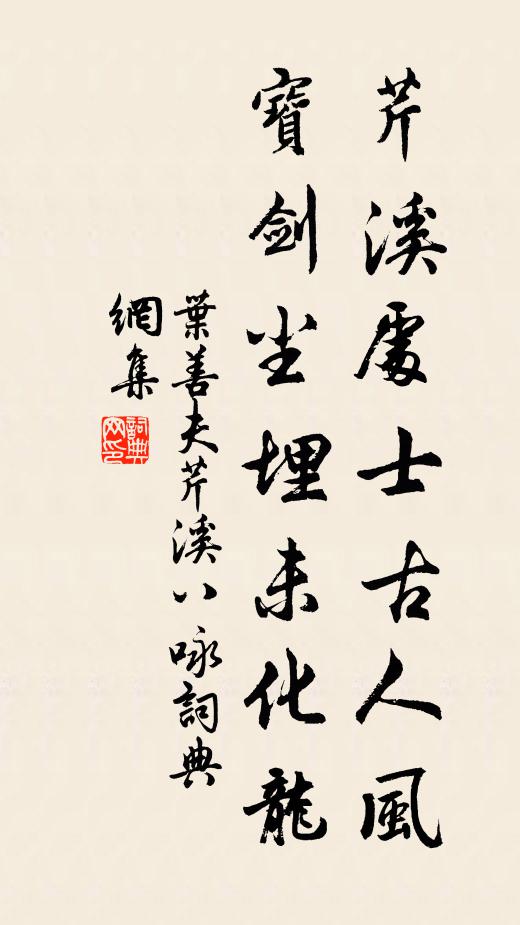 芹溪處士古人風
寶剑尘埋未化龍
葉善夫芹溪八咏詞典
網集
詞典
网印